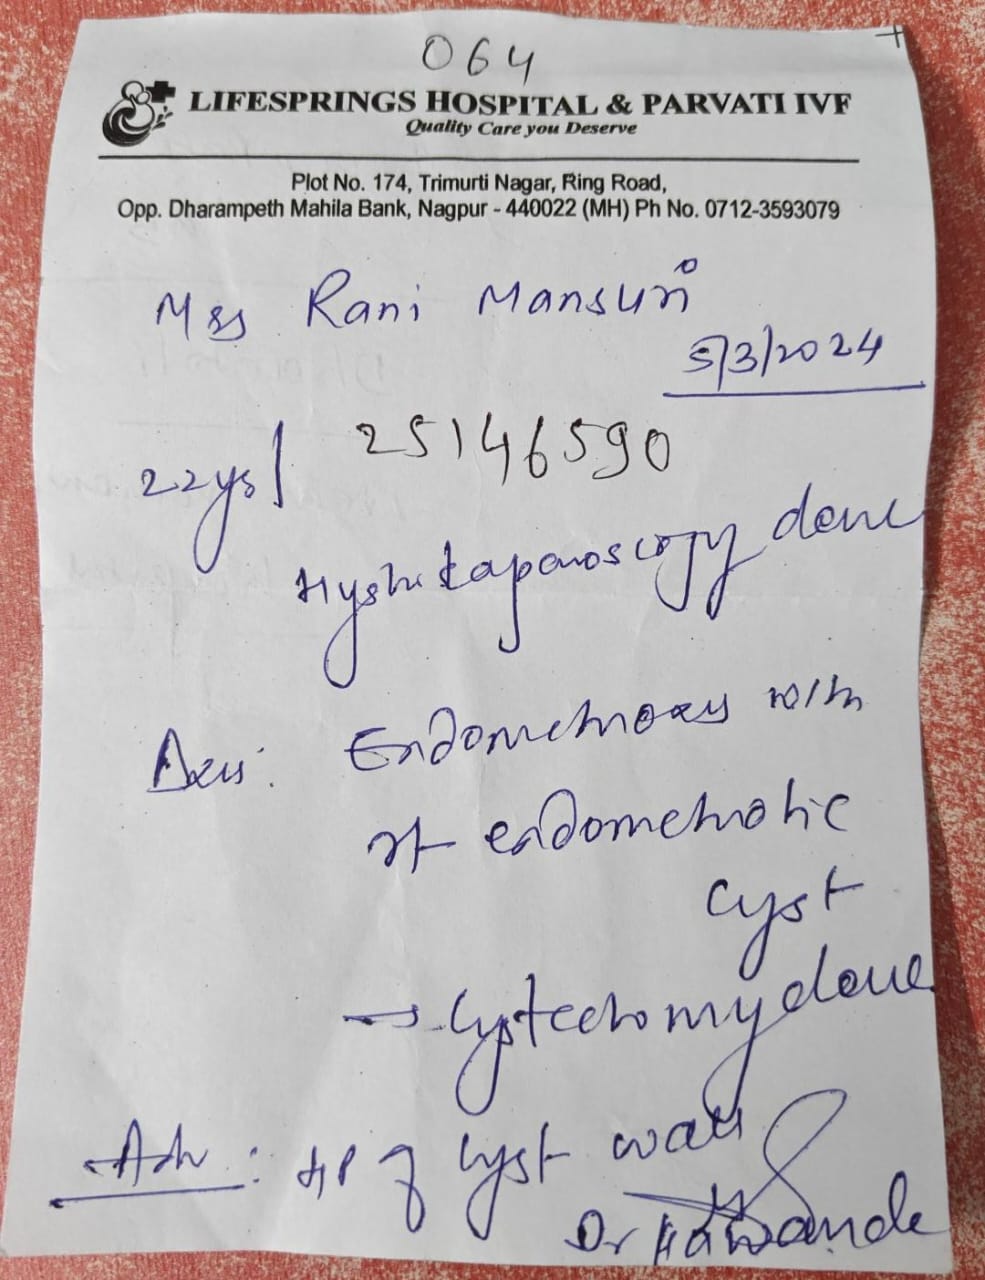 064
LIFESPRINGS HOSPITAL & PARVATI IVF
Quality Care you Deserve
Plot No. 174, Trimurti Nagar, Ring Road,
Opp. Dharampeth Mahila Bank, Nagpur - 440022 (MH) Ph No. 0712-3593079
Mrs Rani Mansuri
5/3/2024
22ys/ 25146590
Hystolaparoscopy done
Endometriosis with
rt endometriotic
cyst
→ Cystectomy done
Adv: HP of cyst wall
Dr